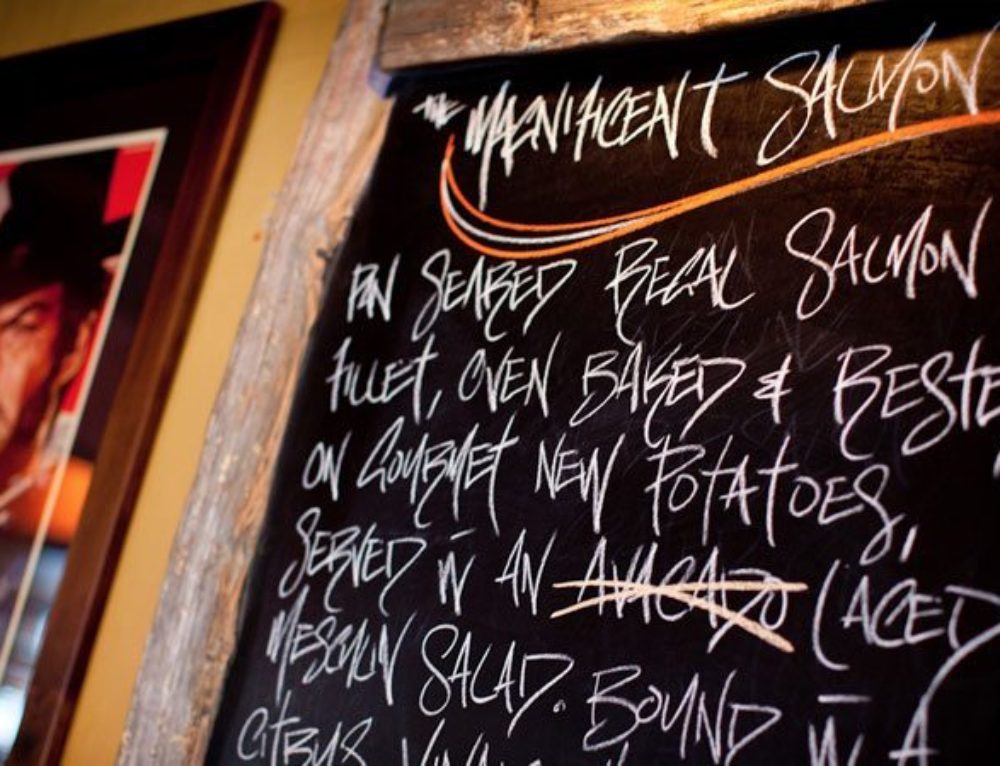 THE MAGNIFICENT SALMON
PAN SEARED REGAL SALMON
FILLET, OVEN BAKED & RESTE
ON GOURMET NEW POTATOES,
SERVED IN AN AVACADO LACED
MESCLUN SALAD. BOUND IN A
CITRUS